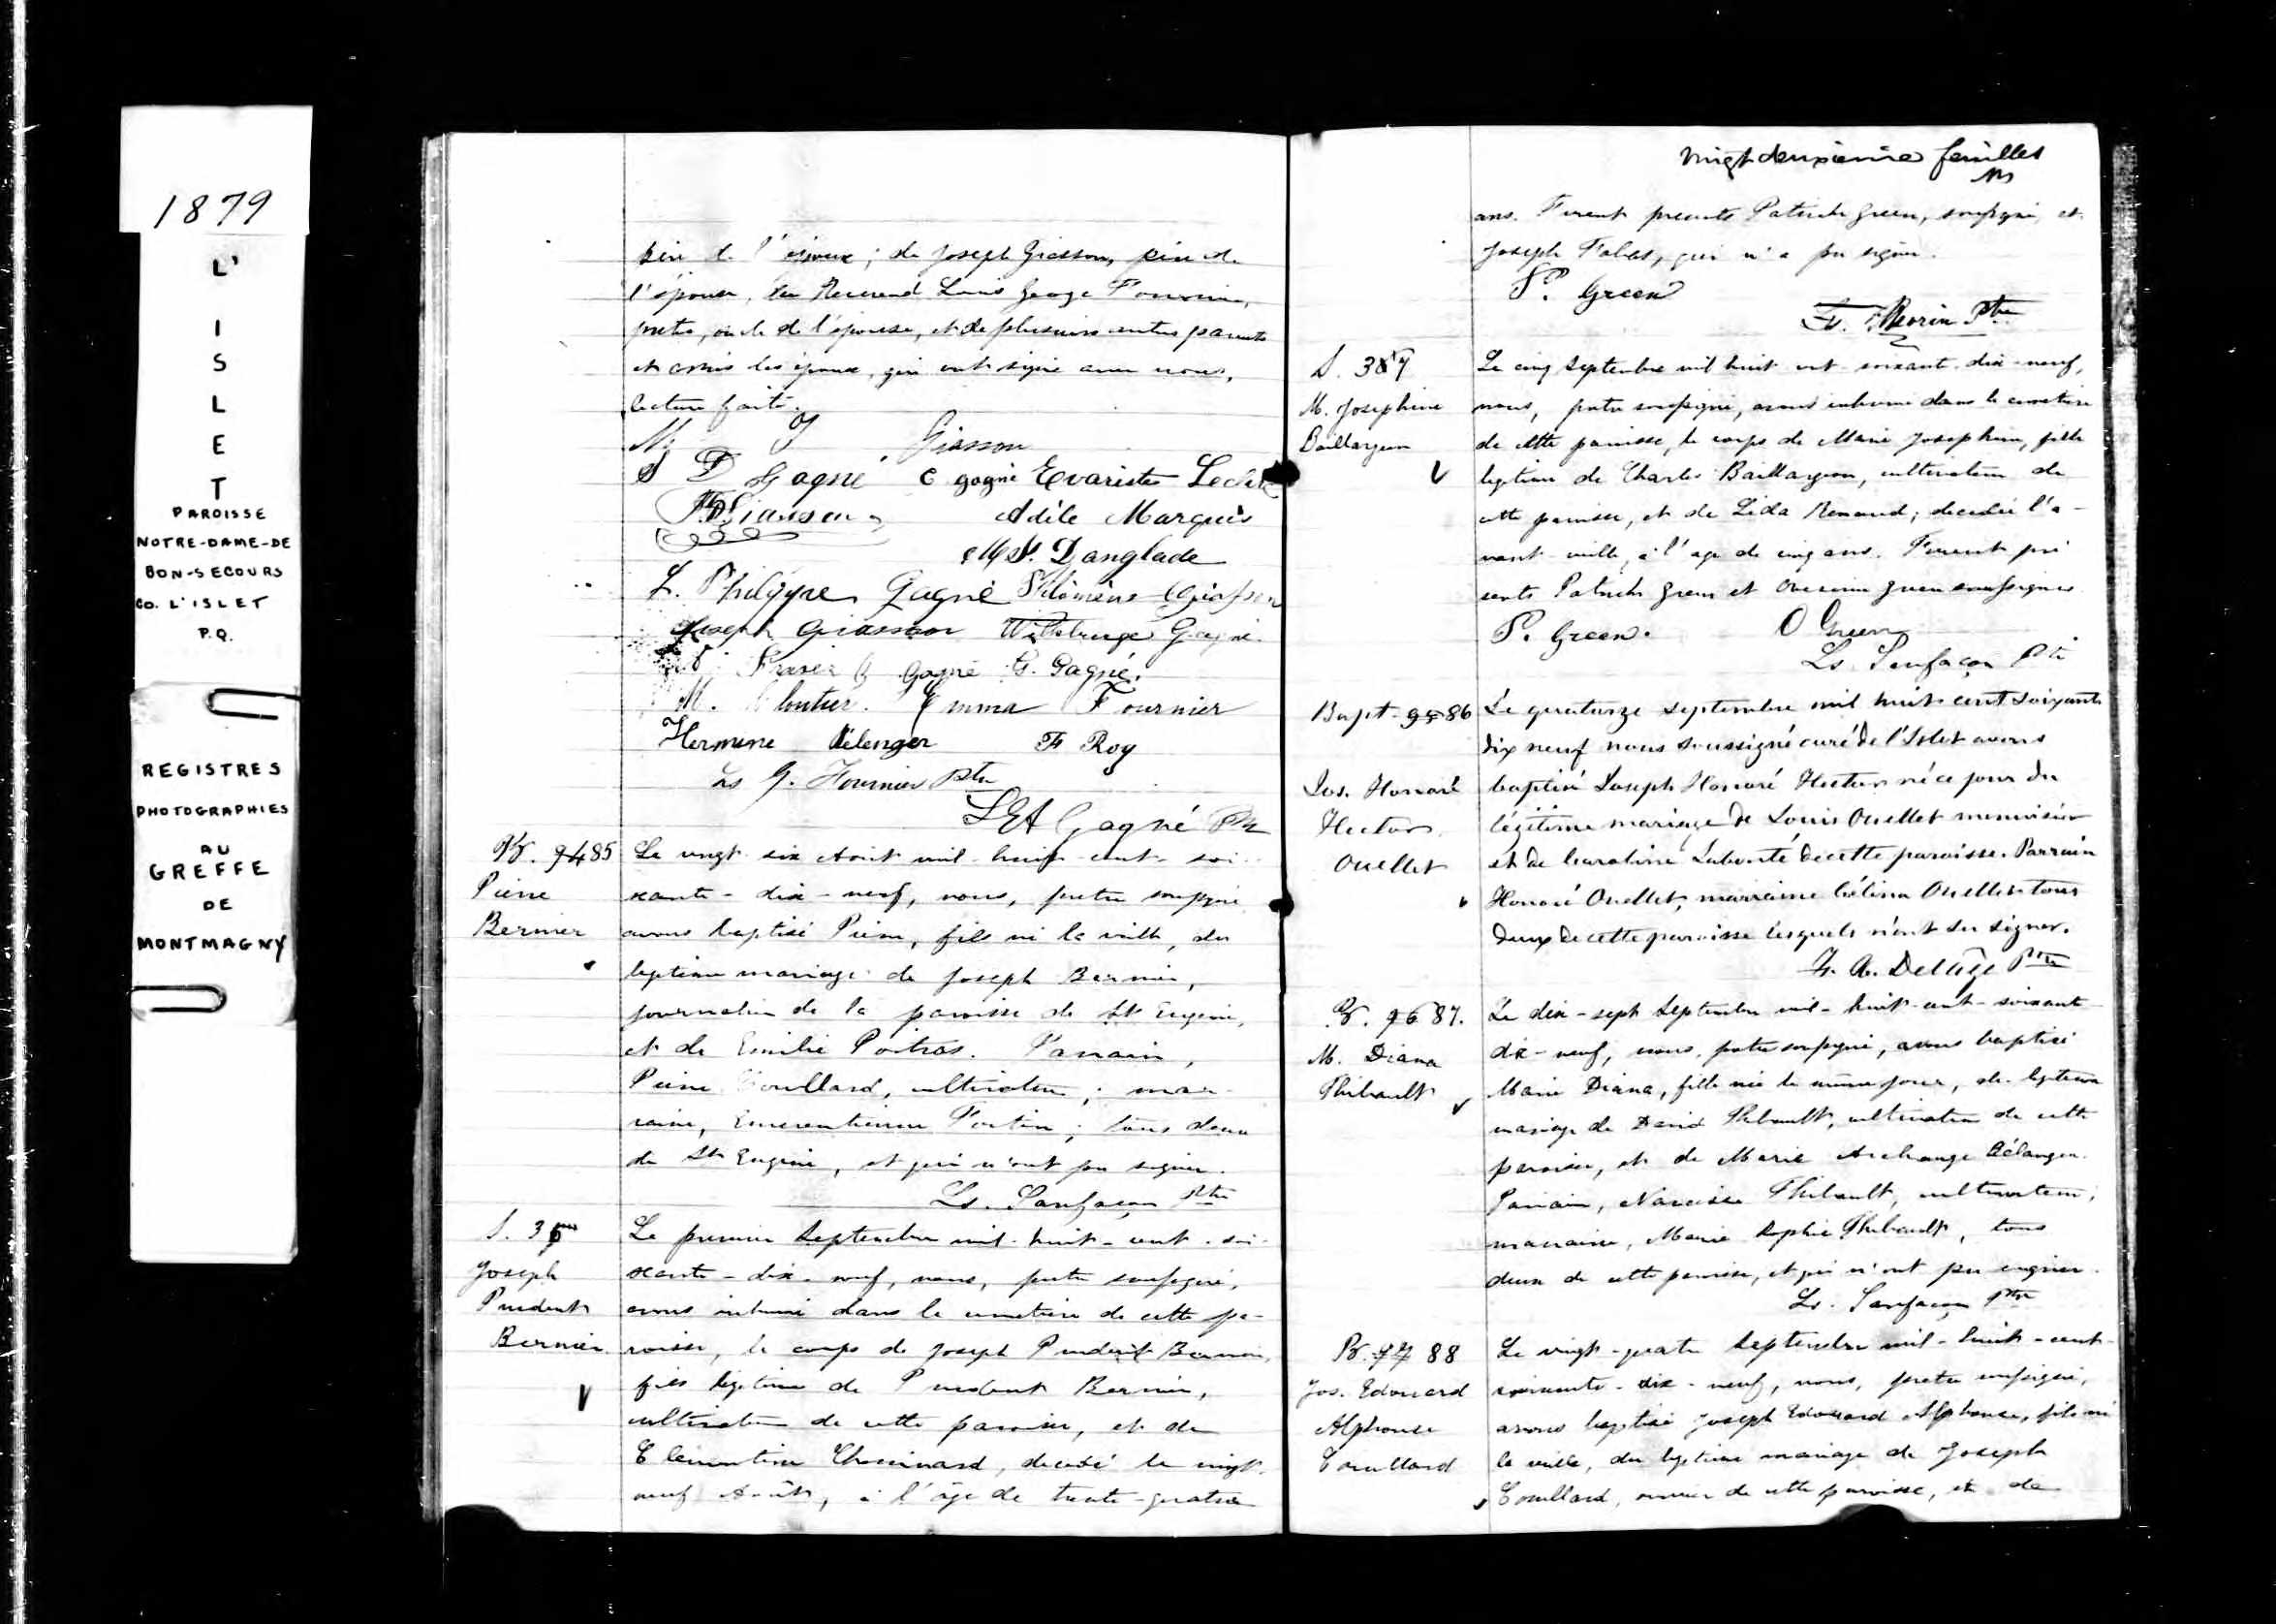 1879
L'
I
S
L
E
T
PAROISSE
NOTRE-DAME-DE
BON-SECOURS
CO. L'ISLET
P.Q.
REGISTRES
PHOTOGRAPHIES
AU
GREFFE
DE
MONTMAGNY
père de l'époux; de Joseph Giasson, père de
l'épouse, du Reverend Louis George Fournier,
pretre, oncle de l'épouse, et de plusieurs autres parents
et amis des époux, qui ont signé avec nous,
lecture faite.
Giasson
Gagné C gagné Evariste Leclerc
Giasson Adèle Marquis
Danglade
L. Philippe Gagné Philomène Giasson
Joseph Giasson Gagné
Fraser Gagné G. Gagné.
M. Cloutier. Emma Fournier
Hermine Bélenger F Roy
Ls G. Fournier Ptre
Gagné Ptre
B. 94 85
Pierre
Bernier
Le vingt-six Août mil-huit-cent-soi-
xante-dix-neuf, nous, pretre soussigné
avons baptisé Pierre, fils né la veille, du
légitime mariage de Joseph Bernier,
journalier de la paroisse de St Eugène,
et de Emilie Poitras. Parrain,
Pierre Couillard, cultivateur; mar-
raine, Emerentienne Fortin; tous deux
de St Eugène, et qui n'ont pu signer.
Ls. Sanfaçon Ptre
S. 36
Joseph
Prudent
Bernier
Le premier Septembre mil-huit-cent-soi-
xante-dix-neuf, nous, pretre soussigné,
avons inhumé dans le cimetière de cette pa-
roisse, le corps de Joseph Prudent Bernier,
fils légitime de Prudent Bernier,
cultivateur de cette paroisse, et de
Clémentine Chouinard, décédé le vingt-
neuf Août, à l'âge de trente-quatre
vingt deuxieme feuillet
ans. Furent presents Patrick Green, soussigné, et
Joseph qui n'a pu signer.
P. Green
Morin Ptre
S. 37
M. Josephine
Baillargeon
Le cinq Septembre mil huit cent soixante-dix-neuf,
nous, pretre soussigné, avons inhumé dans le cimetière
de cette paroisse, le corps de Marie Josephine, fille
légitime de Charles Baillargeon, cultivateur de
cette paroisse, et de Lida Renaud, décédée l'a-
vant-veille, à l'age de cinq ans. Furent pré
sents Patrick Green et Green soussignés
P. Green. O Green
Ls. Sanfaçon Ptre
Bapt- 95 86
Jos. Honoré
Hector
Ouellet
Le quatorze septembre mil huit cent soixante
dix neuf nous soussigné curé de l'Islet avons
baptisé Joseph Honoré Hector né ce jour du
légitime mariage de Louis Ouellet menuisier
et de Caroline Labonté de cette paroisse. Parrain
Honoré Ouellet, marraine Célina Ouellet tous
deux de cette paroisse lesquels n'ont su signer.
F. X. Delâge Ptre
B. 96 87.
M. Diana
Thibault
Le dix-sept Septembre mil-huit-cent-soixante
dix-neuf, nous, pretre soussigné, avons baptisé
Marie Diana, fille née le même jour, du légitime
mariage de David Thibault, cultivateur de cette
paroisse, et de Marie Archange Bélanger.
Parrain, Narcisse Thibault, cultivateur;
marraine, Marie Sophie Thibault, tous
deux de cette paroisse, et qui n'ont pu signer.
Ls. Sanfaçon Ptre
B. 97 88
Jos. Edouard
Alphonse
Couillard
Le vingt-quatre Septembre mil-huit-cent-
soixante-dix-neuf, nous, pretre soussigné,
avons baptisé Joseph Edouard Alphonse, fils né
la veille, du légitime mariage de Joseph
Couillard, de cette paroisse, et de